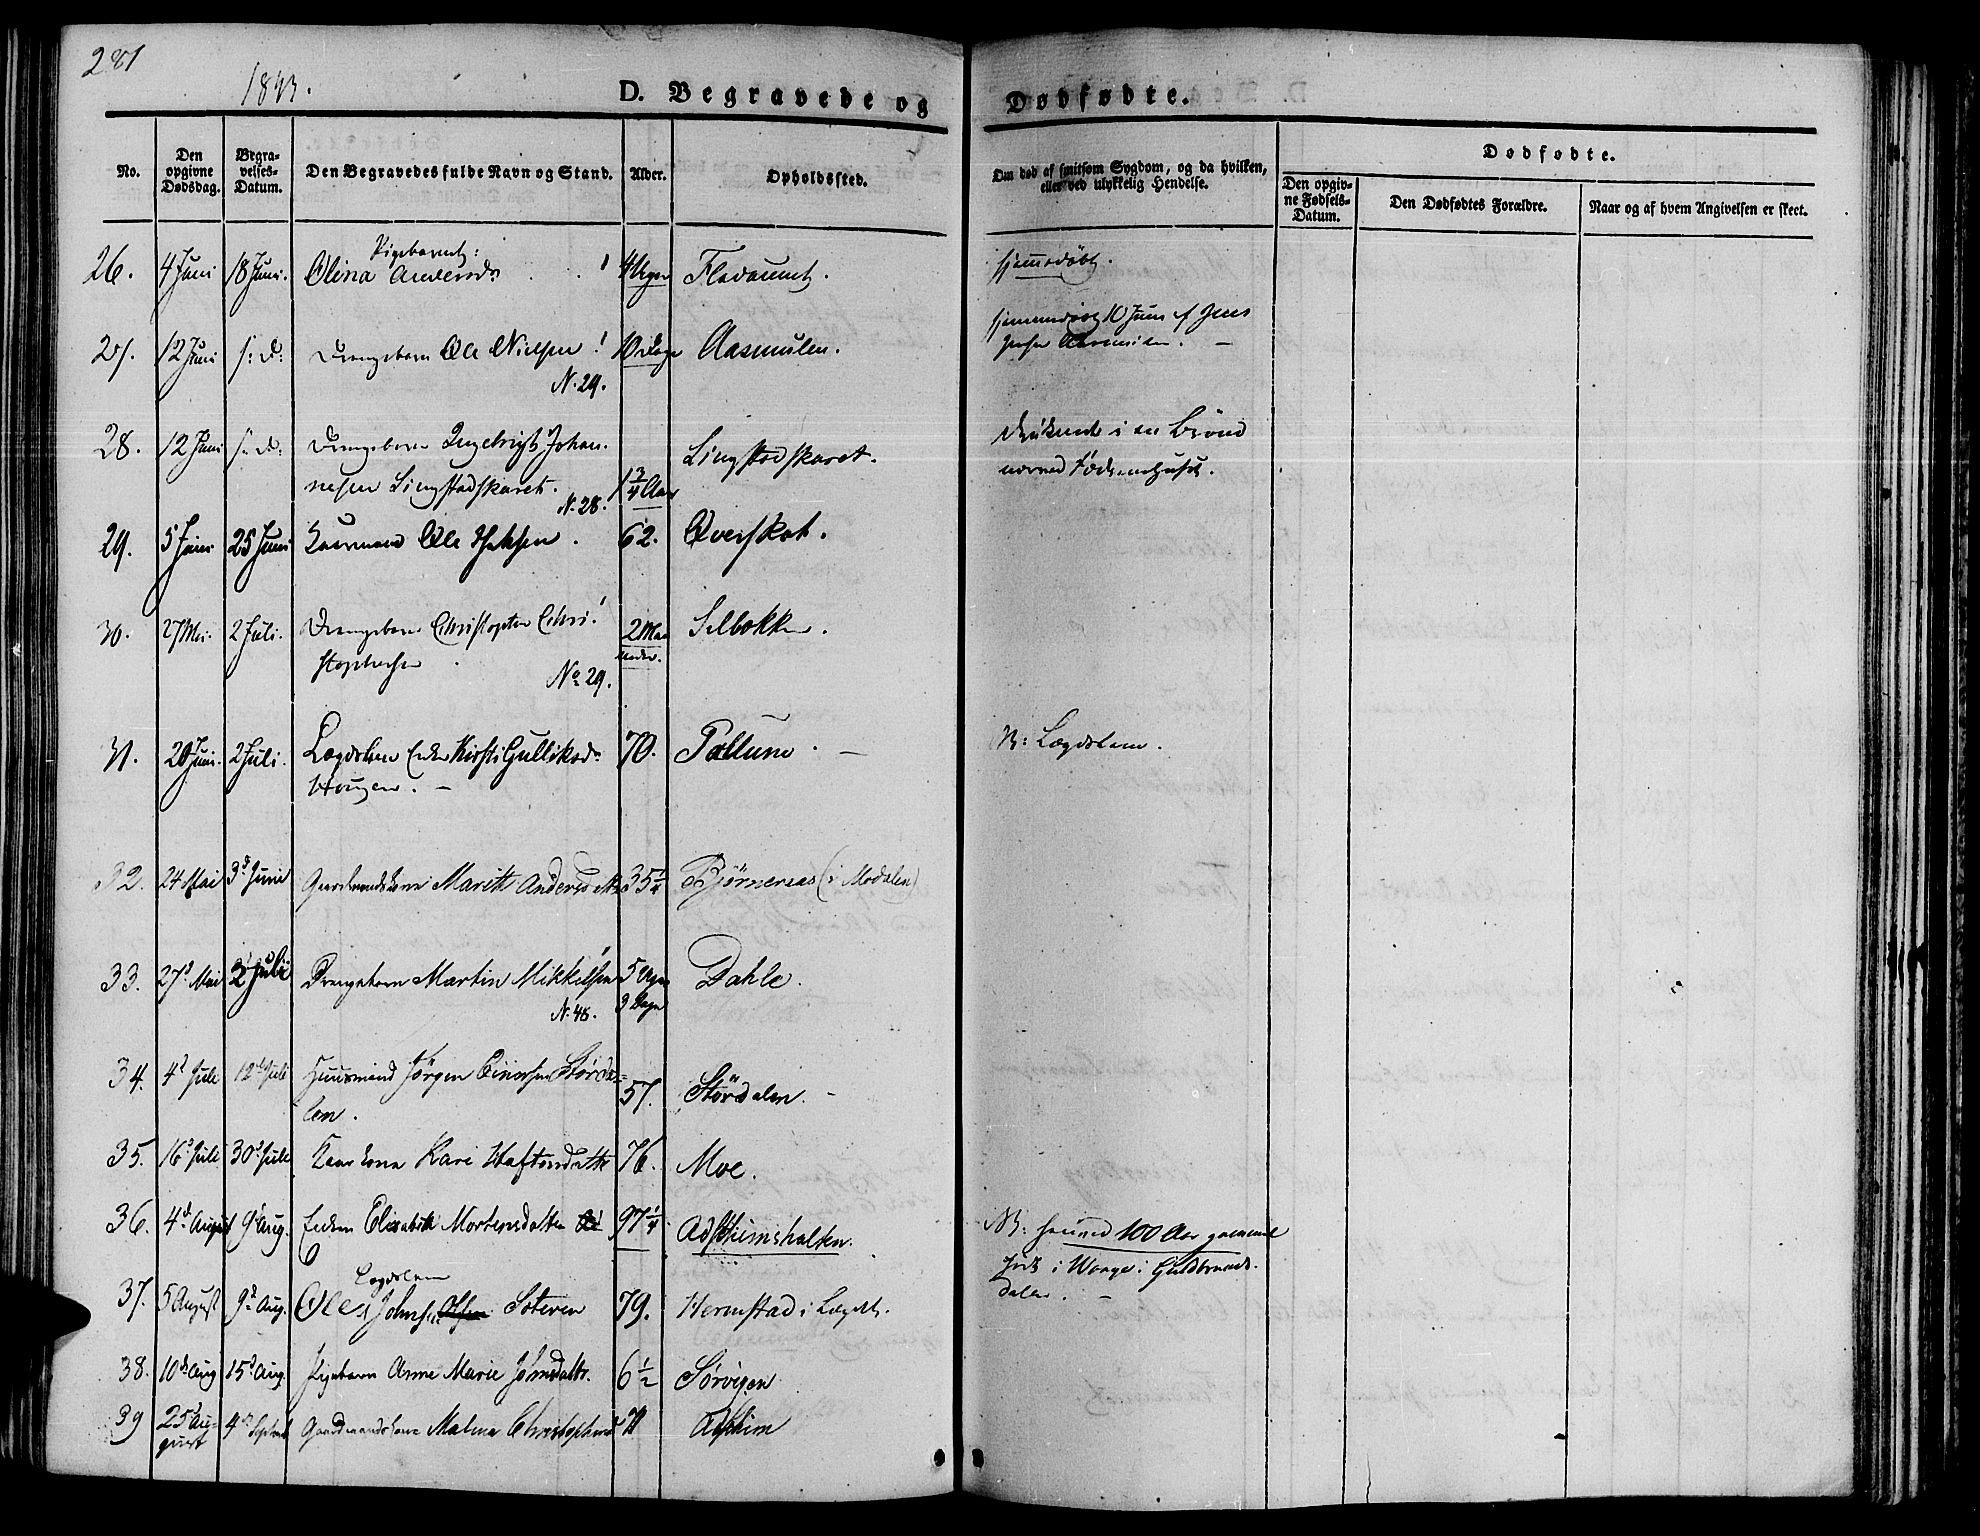 281
1843.
D. Begravede og Dødfødte.
No.
Den opgivne Dødsdag.
Begravelses-Datum.
Den Begravedes fulde Navn og Stand.
Alder.
Opholdssted.
Om død af smitsom Sygdom, og da hvilken,
eller ved ulykkelig Hendelse.
Dødfødte.
Den opgivne Fødsels-Datum.
Den Dødfødtes Forældre.
Naar og af hvem Angivelsen er skeet.
Pigebarnet:
26. 4 Juni 18 Juni. Olina Andersdr 4 Uger Flovaunet. hjemmedøbt.
27. 12 Juni s: D: Drengebarn Ole Nielsen 10 Dage Aasmulen. hjemmedøbt 10 Juni af Jens
N. 29.
28. 12 Juni s: D: Drengebarn Ingebrigt Johan-
nesen Lingstadskaret. 1 3/4 Aar Lingstadskaret. Druknede i en Brønd
N. 28. nærved Fødsenehuset.
29. 5 Juni 25 Juni Kaarmand Ole 62. Overskot.
30. 27 Mai. 2 Juli. Drengebarn Christopher Chri-
stophersen 2 Maaneder. Selbækken.
No 29.
31. 20 Juni. 2 Juli. Lægdslem Enke Kirsti Gulliksdr
Hougen. 70. Pallum NB: Lægdslem.
32. 24 Mai 3d Juni Gaardmandskone Marith Andersdatter 35 1/4 Bjørneraas (i Modalen)
33. 27d Mai 2 Juli Drengebarn Martin Mikkelsen 5 Uger
3 Dage Dahle.
N. 48.
34. 4d Juli 12d Juli Huusmand Jørgen Einersen Størda-
len. 57. Størdalen.
35. 16d Juli 30d Juli Kaarkona Kari Haftorsdatter 76. Moe.
36. 4d August 9d Aug. Enken Elisabeth Mortensdatter 97 1/4 Adsheimshalten. NB: henved 100 Aar gammel
født i Waage i Guldbrands-
dalen.
Lægdslem
37. 5 August 9d Aug. Ole Johnsen Olsen Soteren 79. Hermstad i Lægdet.
38. 10d Aug 15d Aug. Pigebarn Anne Marie Jonsdatter. 6 1/2 Sørvigen
39 25d August 4d Septbr Gaardmandskone Malene Christophersd 71 Adsheim